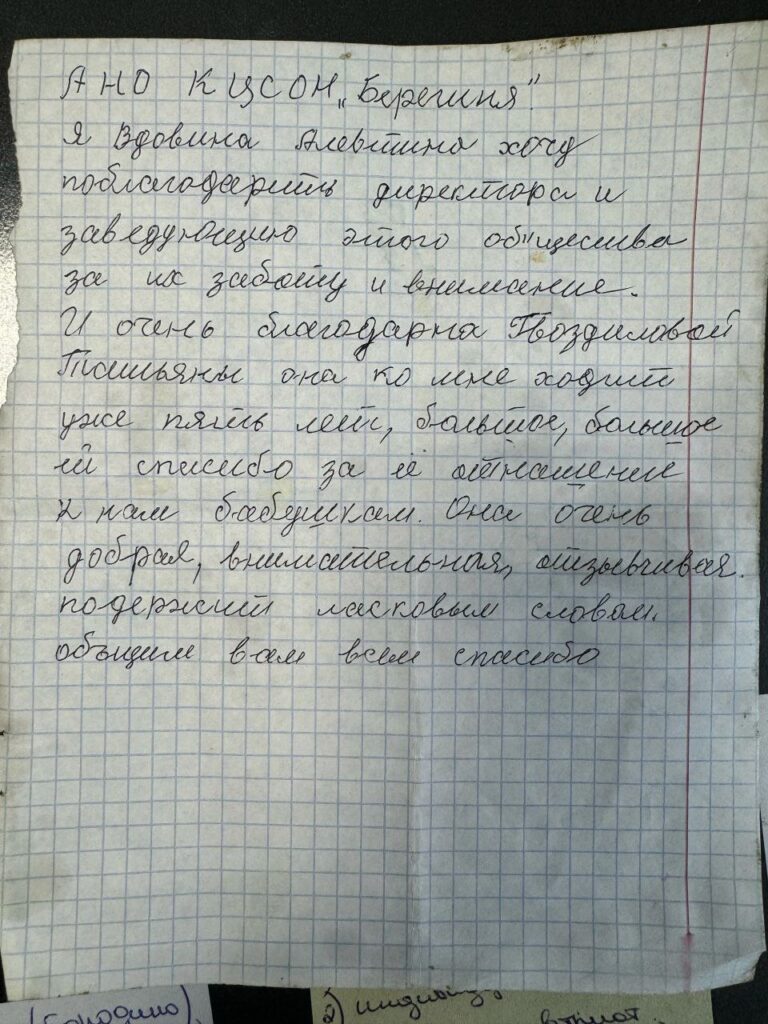 АНО КЦСОН „Берегиня".
Я Вдовина Алевтина хочу
поблагодарить директора и
заведующию этого об"щества
за их заботу и внимание.
И очень благодарна Гвоздиловой
Татьяны она ко мне ходит
уже пять лет, большое, большое
ей спасибо за её отнашений
к нам бабушкам. Она очень
добрая, внимательная, отзывчивая.
подержит ласковым словом.
объщим вам всем спасибо
(Бородино)
2)